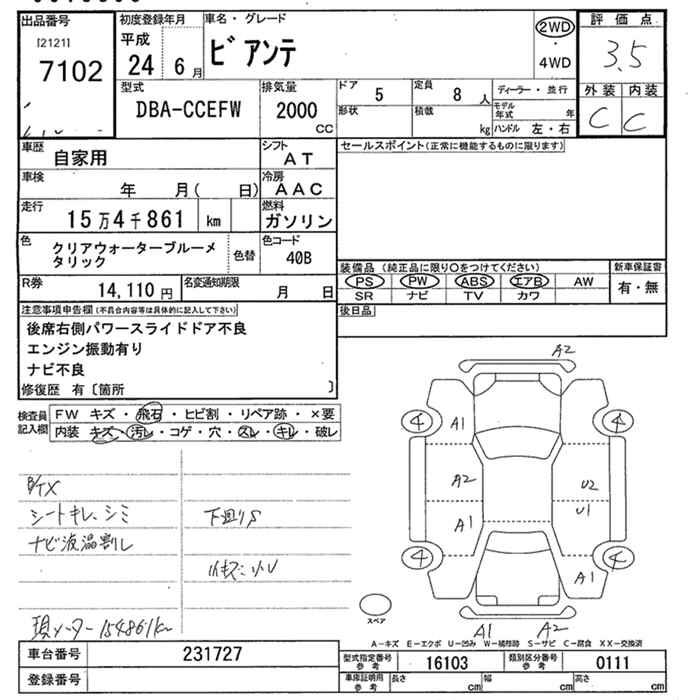 出品番号
[2121]
7102
初度登録年月
平成
24 6 月
車名・グレード
ビアンテ
2WD
・
4WD
評価点
3.5
外装 内装
C C
型式
DBA-CCEFW
排気量
2000
CC
ドア
5
定員
8 人
ディーラー・並行
形状
積載
kg
モデル年式 年
ハンドル 左・右
車歴
自家用
シフト
AT
セールスポイント(正常に機能するものに限ります)
車検
年 月( 日)
冷房
AAC
走行
15万4千861 km
燃料
ガソリン
色
クリアウォーターブルーメ
タリック
色替
色コード
40B
装備品(純正品に限り○をつけてください)
PS PW ABS エアB AW
SR ナビ TV カワ
新車保証書
有・無
R券
14,110 円
名変通知期限
月 日
後日品
注意事項申告欄(不具合内容等は具体的に記入して下さい)
後席右側パワースライドドア不良
エンジン振動有り
ナビ不良
修復歴 有〔箇所 〕
検査員
記入欄
FW キズ・飛石・ヒビ割・リペア跡・×要
内装 キズ・汚レ・コゲ・穴・スレ・キレ・破レ
シートキレ、シミ
下廻りS
現メーター154861km
A2
4 4
A1
A2 U2
U1
A1
4 4
A1
スペア
A1 A2
A-キズ E-エクボ U-凹み W-補修跡 S-サビ C-腐食 XX-交換済
車台番号
231727
型式指定番号
参考
16103
類別区分番号
参考
0111
登録番号
車庫証明用
参考
長さ cm 幅 cm 高さ cm